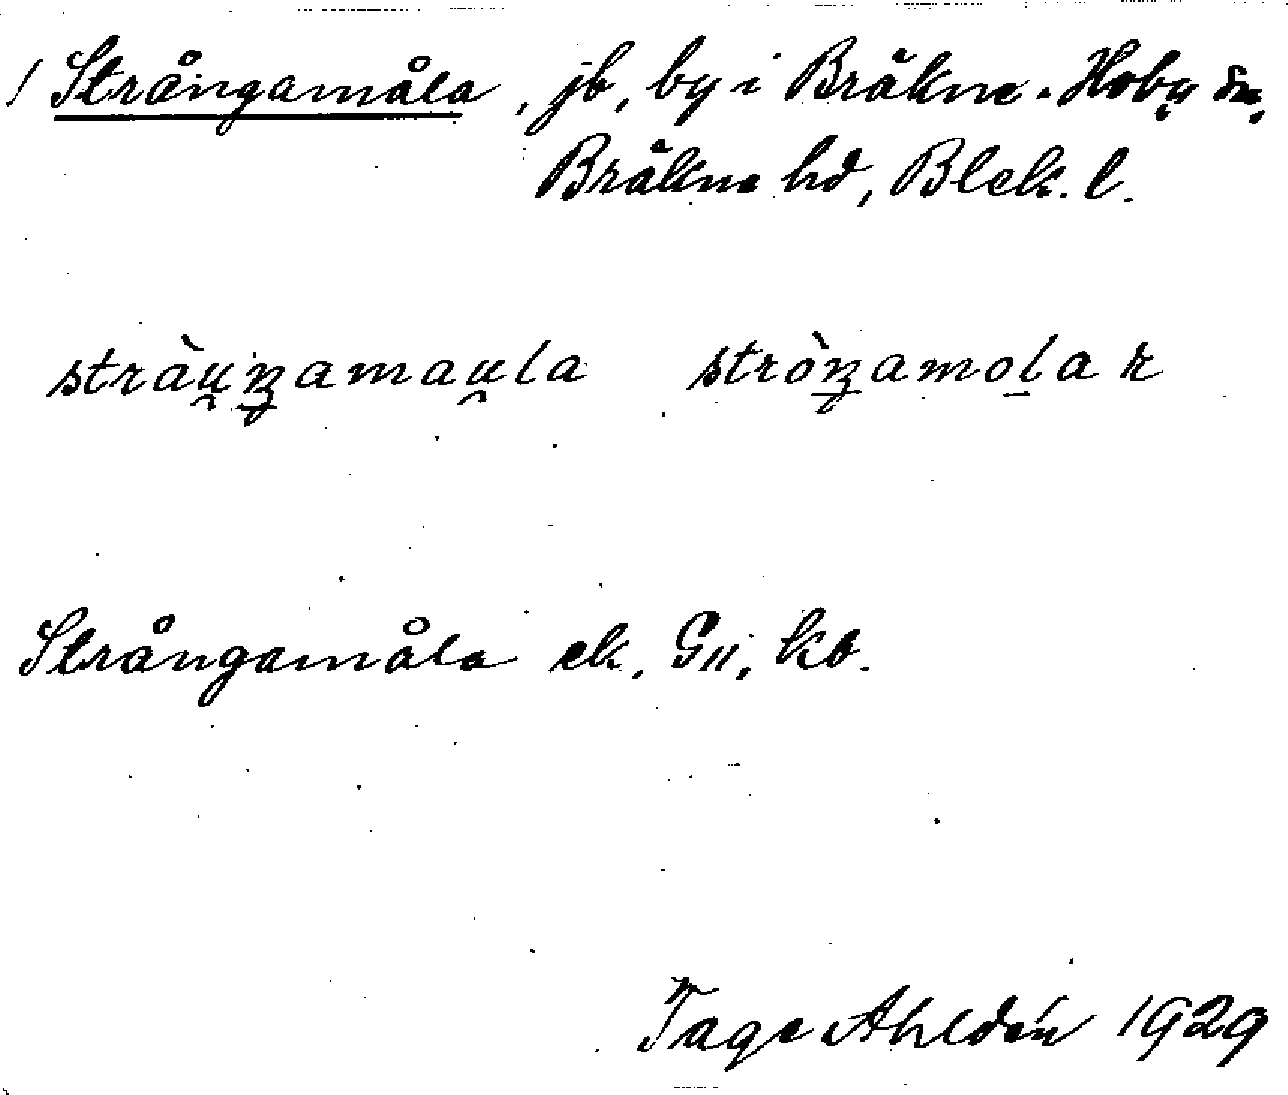 / Strångamåla, jb, by i Bräkne-Hoby sn,
Bräkne hd, Blek. l.
stràu̯ŋamau̯la stròŋamola R
Strångamåla ek, Gii, kb.
Tage Ahldén 1929